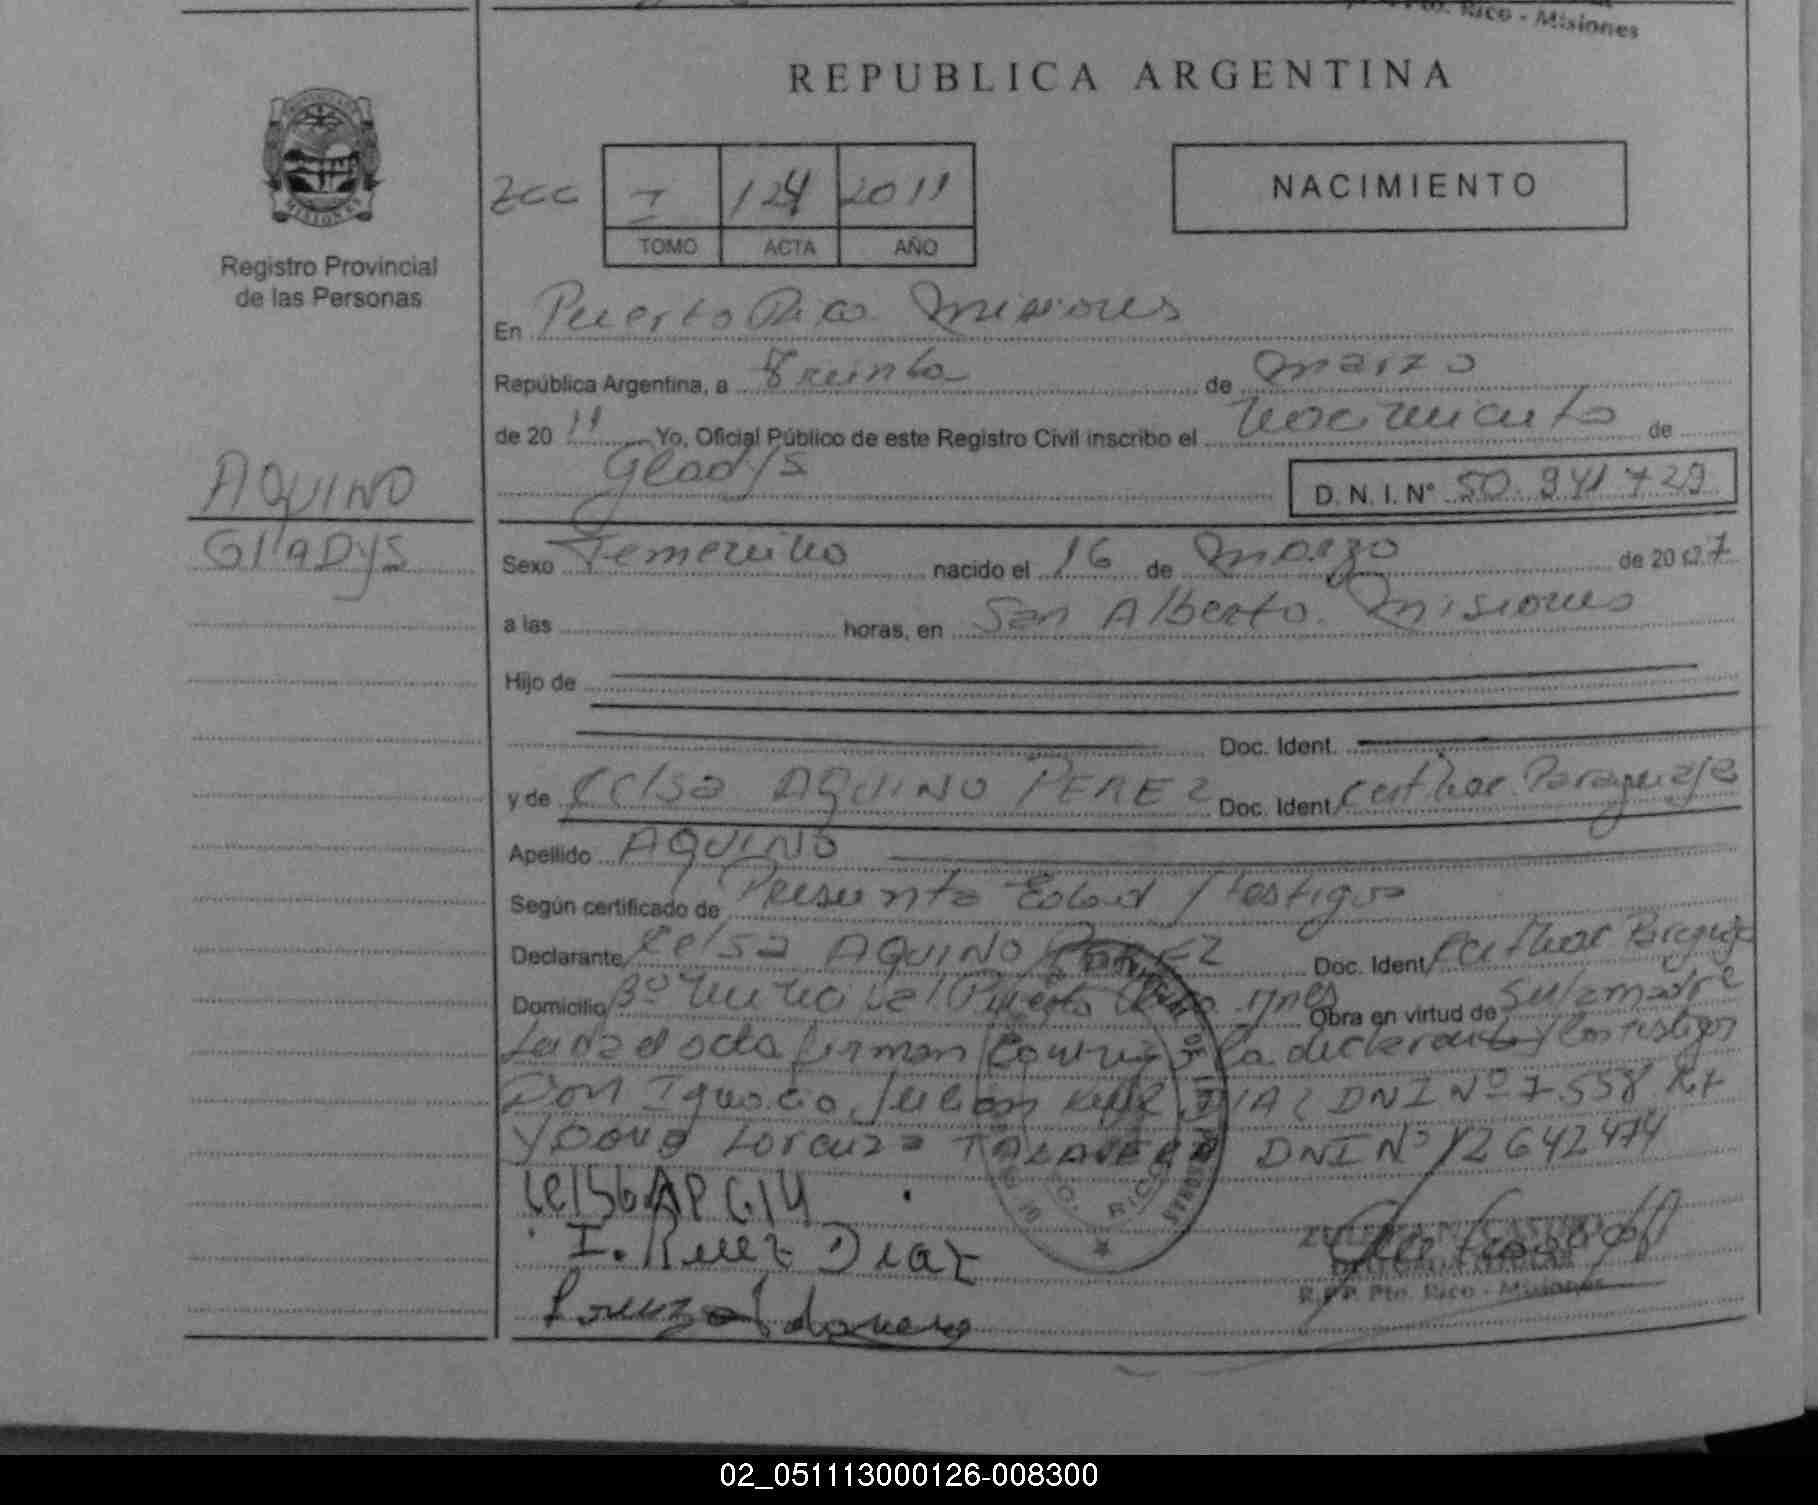 Pto. Rico - Misiones
REPUBLICA ARGENTINA
MISIONES
Registro Provincial
de las Personas
zcc I 124 2011
TOMO ACTA AÑO
NACIMIENTO
En Puerto Rico Misiones
República Argentina, a Treinta de marzo
de 20 11 Yo, Oficial Público de este Registro Civil inscribo el nacimiento de
Gladys D. N. I. N° 50.941729
AQUINO
GlADyS
Sexo Femenino nacido el 16 de Marzo de 20 07
a las horas, en San Alberto. Misiones
Hijo de
Doc. Ident.
y de Celsa AQUINO PEREZ Doc. Ident. Paraguaya
Apellido AQUINO
Según certificado de Presunta Edad y testigos
Declarante Celsa AQUINO PEREZ Doc. Ident.
Domicilio Puerto Obra en virtud de su madre
Leida el acta firman la declarante y los testigos
Don Ignacio Julian DIAZ DNI Nº 7.558
y Doña Lorenza TALAVERA DNI Nº 12642474
I. Ruez Diaz
Lorenza
R.P.P. Pto. Rico - Misiones
02_051113000126-008300